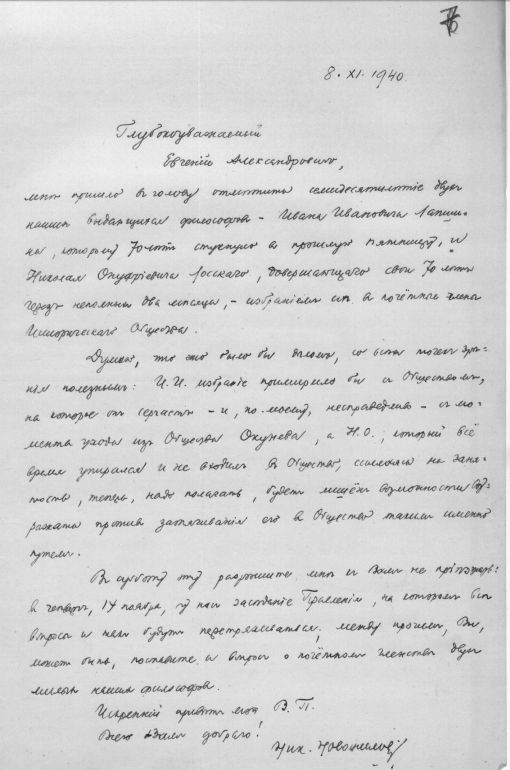 8. XI. 1940
Глубокоуважаемый
Евгеній Александровичъ,
мнѣ пришло въ голову отмѣтить семидесятилѣтіе двухъ
нашихъ выдающихся философовъ – Ивана Ивановича Лапши-
на, которому 70 лѣтъ стукнуло в прошлую пятницу, и
Николая Онуфріевича Лосскаго, довершающаго свои 70 лѣтъ
черезъ неполныхъ два мѣсяца, – избраніемъ ихъ в почётные члены
Историческаго Общества.
Думаю, что это было бы дѣломъ, со всѣхъ точекъ зрѣ-
нія полезнымъ: И. И. избраніе примирило бы съ Обществомъ,
на которое онъ сердитъ – и, по-моему, несправедливо – съ мо-
мента ухода изъ Общества Окунева, а Н. О., который всё
время упирался и не входилъ въ Общество, ссылаясь на заня-
тость, теперь, надо полагать, будетъ лишёнъ возможности воз-
ражать противъ затягиванія его в Общество такимъ именно
путемъ.
Въ субботу эту разрѣшите мнѣ къ Вамъ не пріѣзжать:
в четвергъ, 14 ноября, у насъ засѣданіе Правленія, на которомъ всѣ
вопросы и темы будутъ перетряхиваться; между прочимъ, Вы,
можетъ быть, поставите и вопросъ о почётномъ членствѣ двухъ
милыхъ нашихъ философовъ.
Искренній привѣтъ В. П.
Всего Вамъ добраго!
Ник.